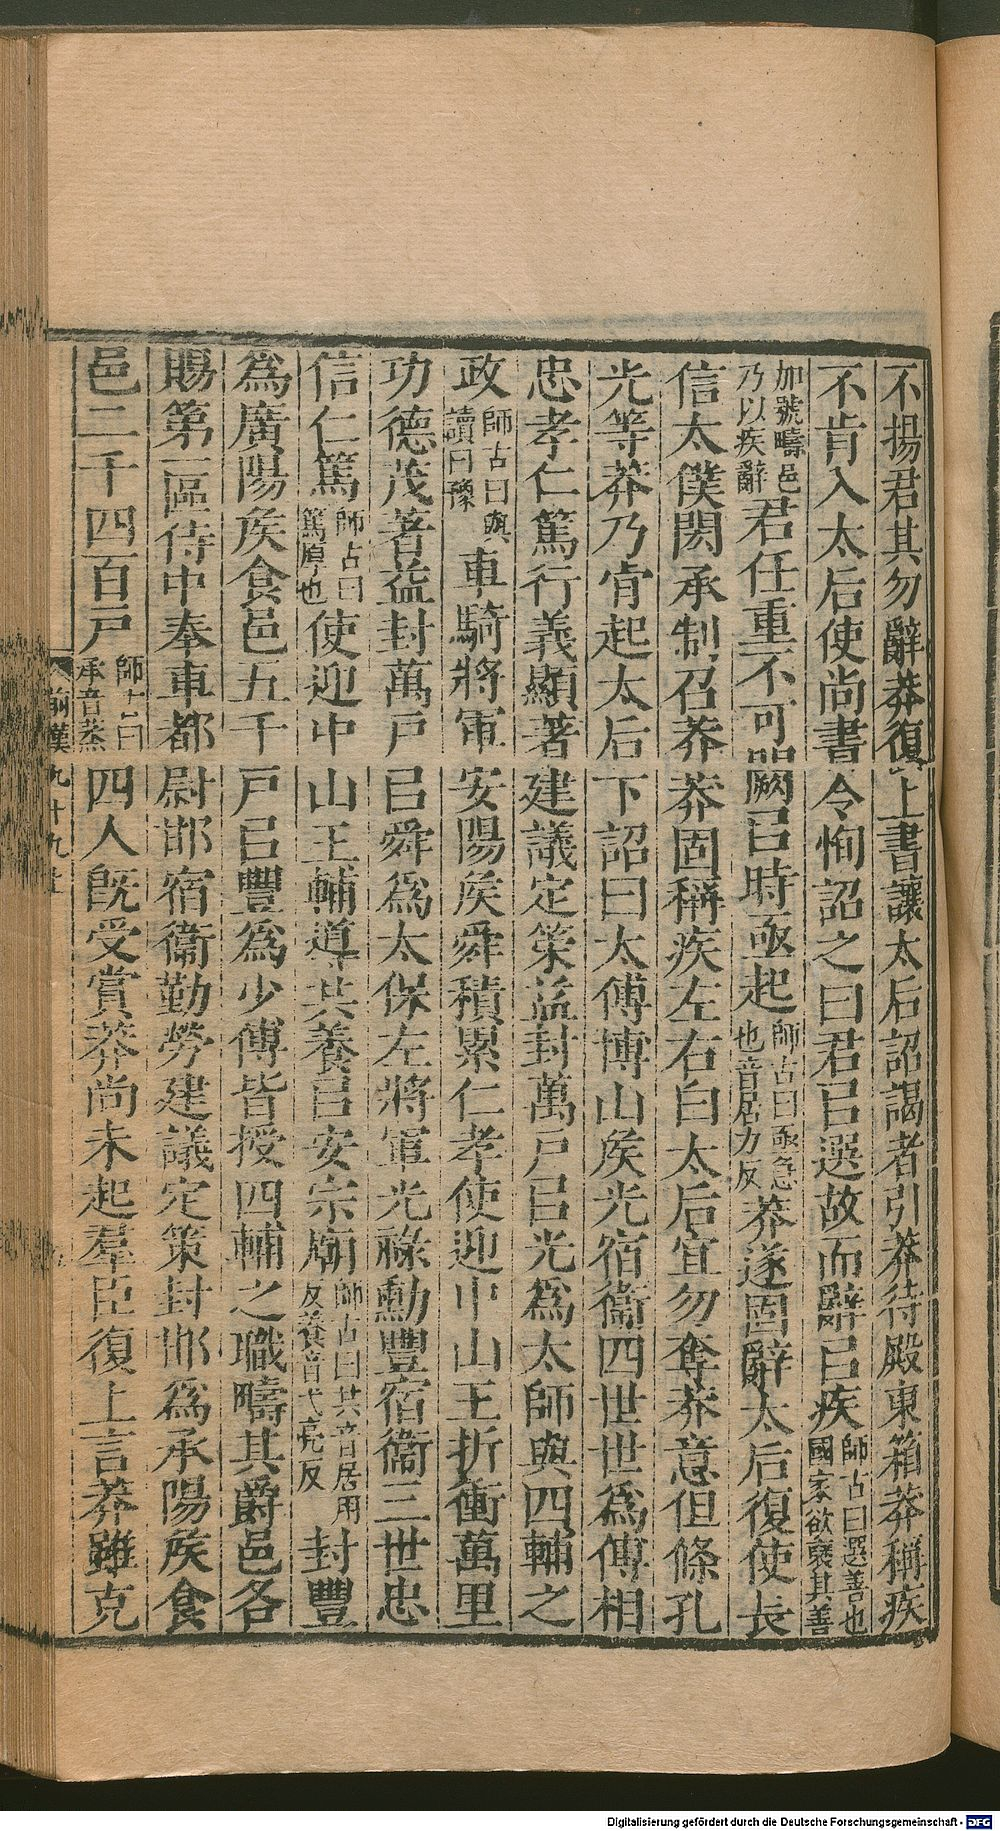 不揚君其勿辭莽復上書讓太后詔謁者引莽待殿東箱莽稱疾
不肯入太后使尚書令恂詔之曰君㠯選故而辭㠯疾師古曰選善也國家欲襃其善
加號疇邑乃以疾辭君任重不可闕㠯時亟起師古曰亟急也音居力反莽遂固辭太后復使長
信太僕閎承制召莽莽固稱疾左右白太后宜勿奪莽意但條孔
光等莽乃肯起太后下詔曰太傅博山矦光宿衞四世世爲傅相
忠孝仁篤行義顯著建議定策益封萬戶㠯光爲太師與四輔之
政師古曰與讀曰豫車騎將軍安陽矦舜積累仁孝使迎中山王折衝萬里
功德茂著益封萬戶㠯舜爲太保左將軍光祿勳豐宿衞三世忠
信仁篤師古曰篤厚也使迎中山王輔導共養㠯安宗廟師古曰共音居用反養音弋亮反封豐
爲廣陽矦食邑五千戶㠯豐爲少傅皆授四輔之職疇其爵邑各
賜第一區侍中奉車都尉邯宿衞勤勞建議定策封邯爲承陽矦食
邑二千四百戶師古曰承音烝四人旣受賞莽尚未起羣臣復上言莽雖克
前漢九十九上
Digitalisierung gefördert durch die Deutsche Forschungsgemeinschaft - DFG